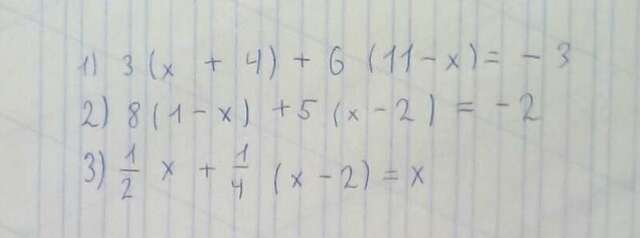 1) 3 (x + 4) + 6 (11 - x) = - 3
2) 8 (1 - x) + 5 (x - 2) = - 2
3) 1/2 x + 1/4 (x - 2) = x